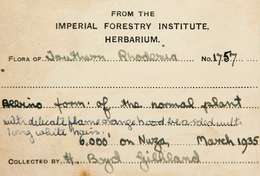 FROM THE
IMPERIAL FORESTRY INSTITUTE.
HERBARIUM.
FLORA OF Southern Rhodesia No. 1757
Albino form of the normal plant
with delicate flame orange hood, bearded with
long white hairs.
6,000' on Nuza, March 1935
COLLECTED BY H. Boyd Gilliland